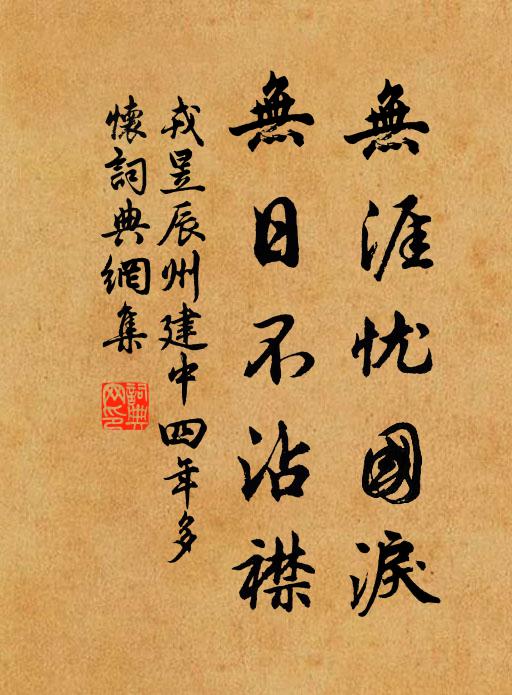 無涯忧國淚
無日不沾襟
戎昱辰州建中四年多
懷詞典網集
詞典
网印